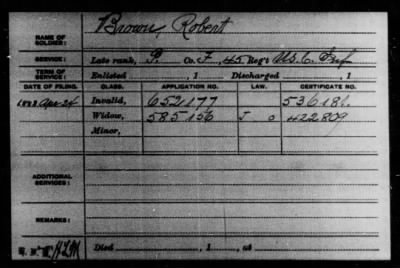 NAME OF SOLDIER: Brown, Robert
SERVICE: Late rank, P. Co. F, 45 Reg't U.S.C. Inf
TERM OF SERVICE: Enlisted , 1 Discharged , 1
DATE OF FILING. CLASS. APPLICATION NO. LAW. CERTIFICATE NO.
Apr 24 Invalid, 652177 536186.
Widow, 585156 J o 422809
Minor,
ADDITIONAL SERVICES:
REMARKS:
Died , 1 , at